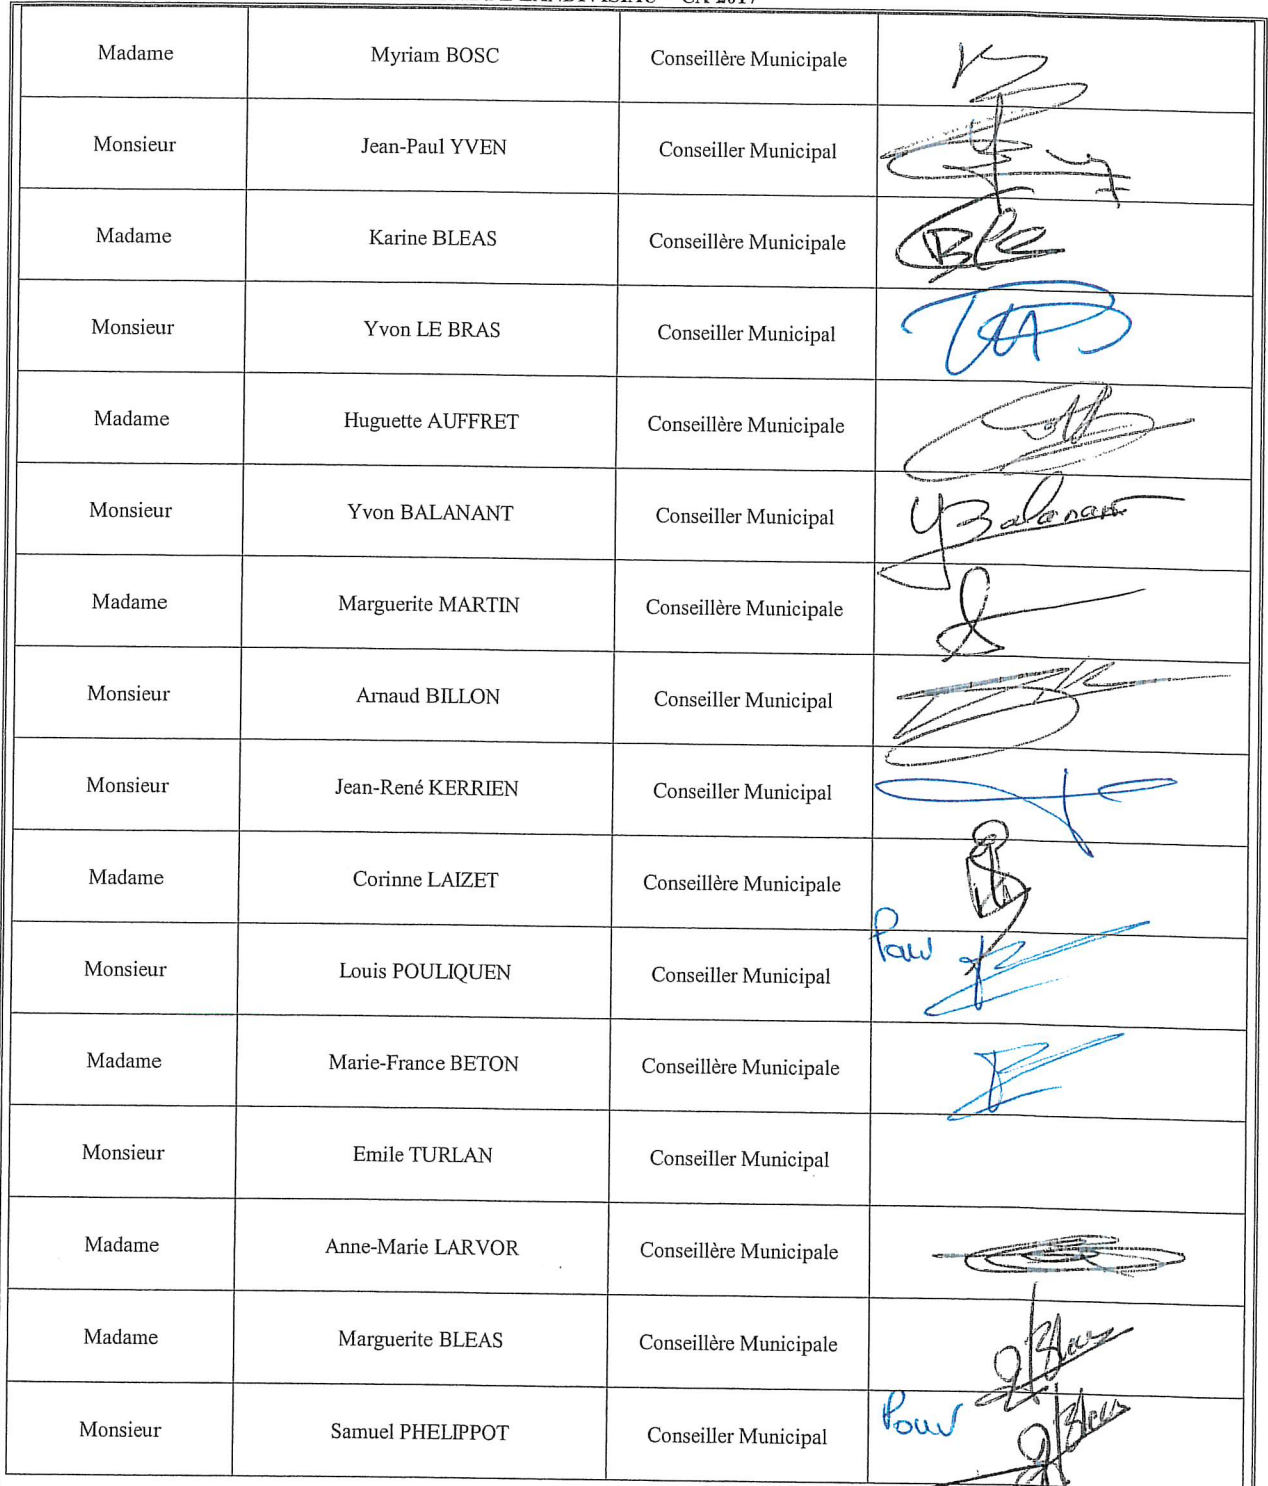 LANDIVISIAU – CA 2017
Madame Myriam BOSC Conseillère Municipale
Monsieur Jean-Paul YVEN Conseiller Municipal
Madame Karine BLEAS Conseillère Municipale
Monsieur Yvon LE BRAS Conseiller Municipal
Madame Huguette AUFFRET Conseillère Municipale
Monsieur Yvon BALANANT Conseiller Municipal YBalanant
Madame Marguerite MARTIN Conseillère Municipale
Monsieur Arnaud BILLON Conseiller Municipal
Monsieur Jean-René KERRIEN Conseiller Municipal
Madame Corinne LAIZET Conseillère Municipale
Monsieur Louis POULIQUEN Conseiller Municipal Pour
Madame Marie-France BETON Conseillère Municipale
Monsieur Emile TURLAN Conseiller Municipal
Madame Anne-Marie LARVOR Conseillère Municipale
Madame Marguerite BLEAS Conseillère Municipale Bleas
Monsieur Samuel PHELIPPOT Conseiller Municipal Pour Bleas